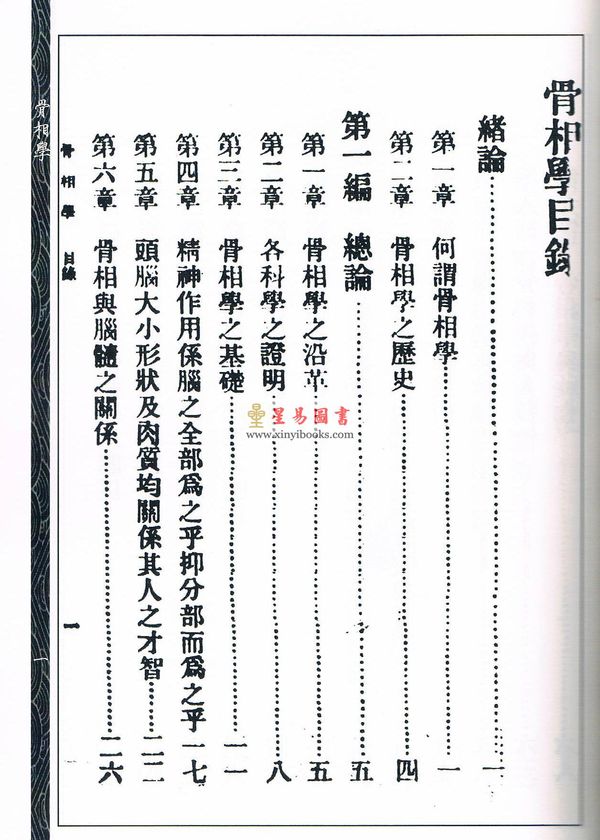 骨相學目錄
緒論……一
第一章 何謂骨相學……一
第二章 骨相學之歷史……四
第一編 總論……五
第一章 骨相學之沿革……五
第二章 各科學之證明……八
第三章 骨相學之基礎……一一
第四章 精神作用係腦之全部爲之乎抑分部而爲之乎一七
第五章 頭腦大小形狀及肉質均關係其人之才智……二二
第六章 骨相與腦髓之關係……二六
骨相學 目錄 一
骨相學 一
星易圖書
www.xinyibooks.com